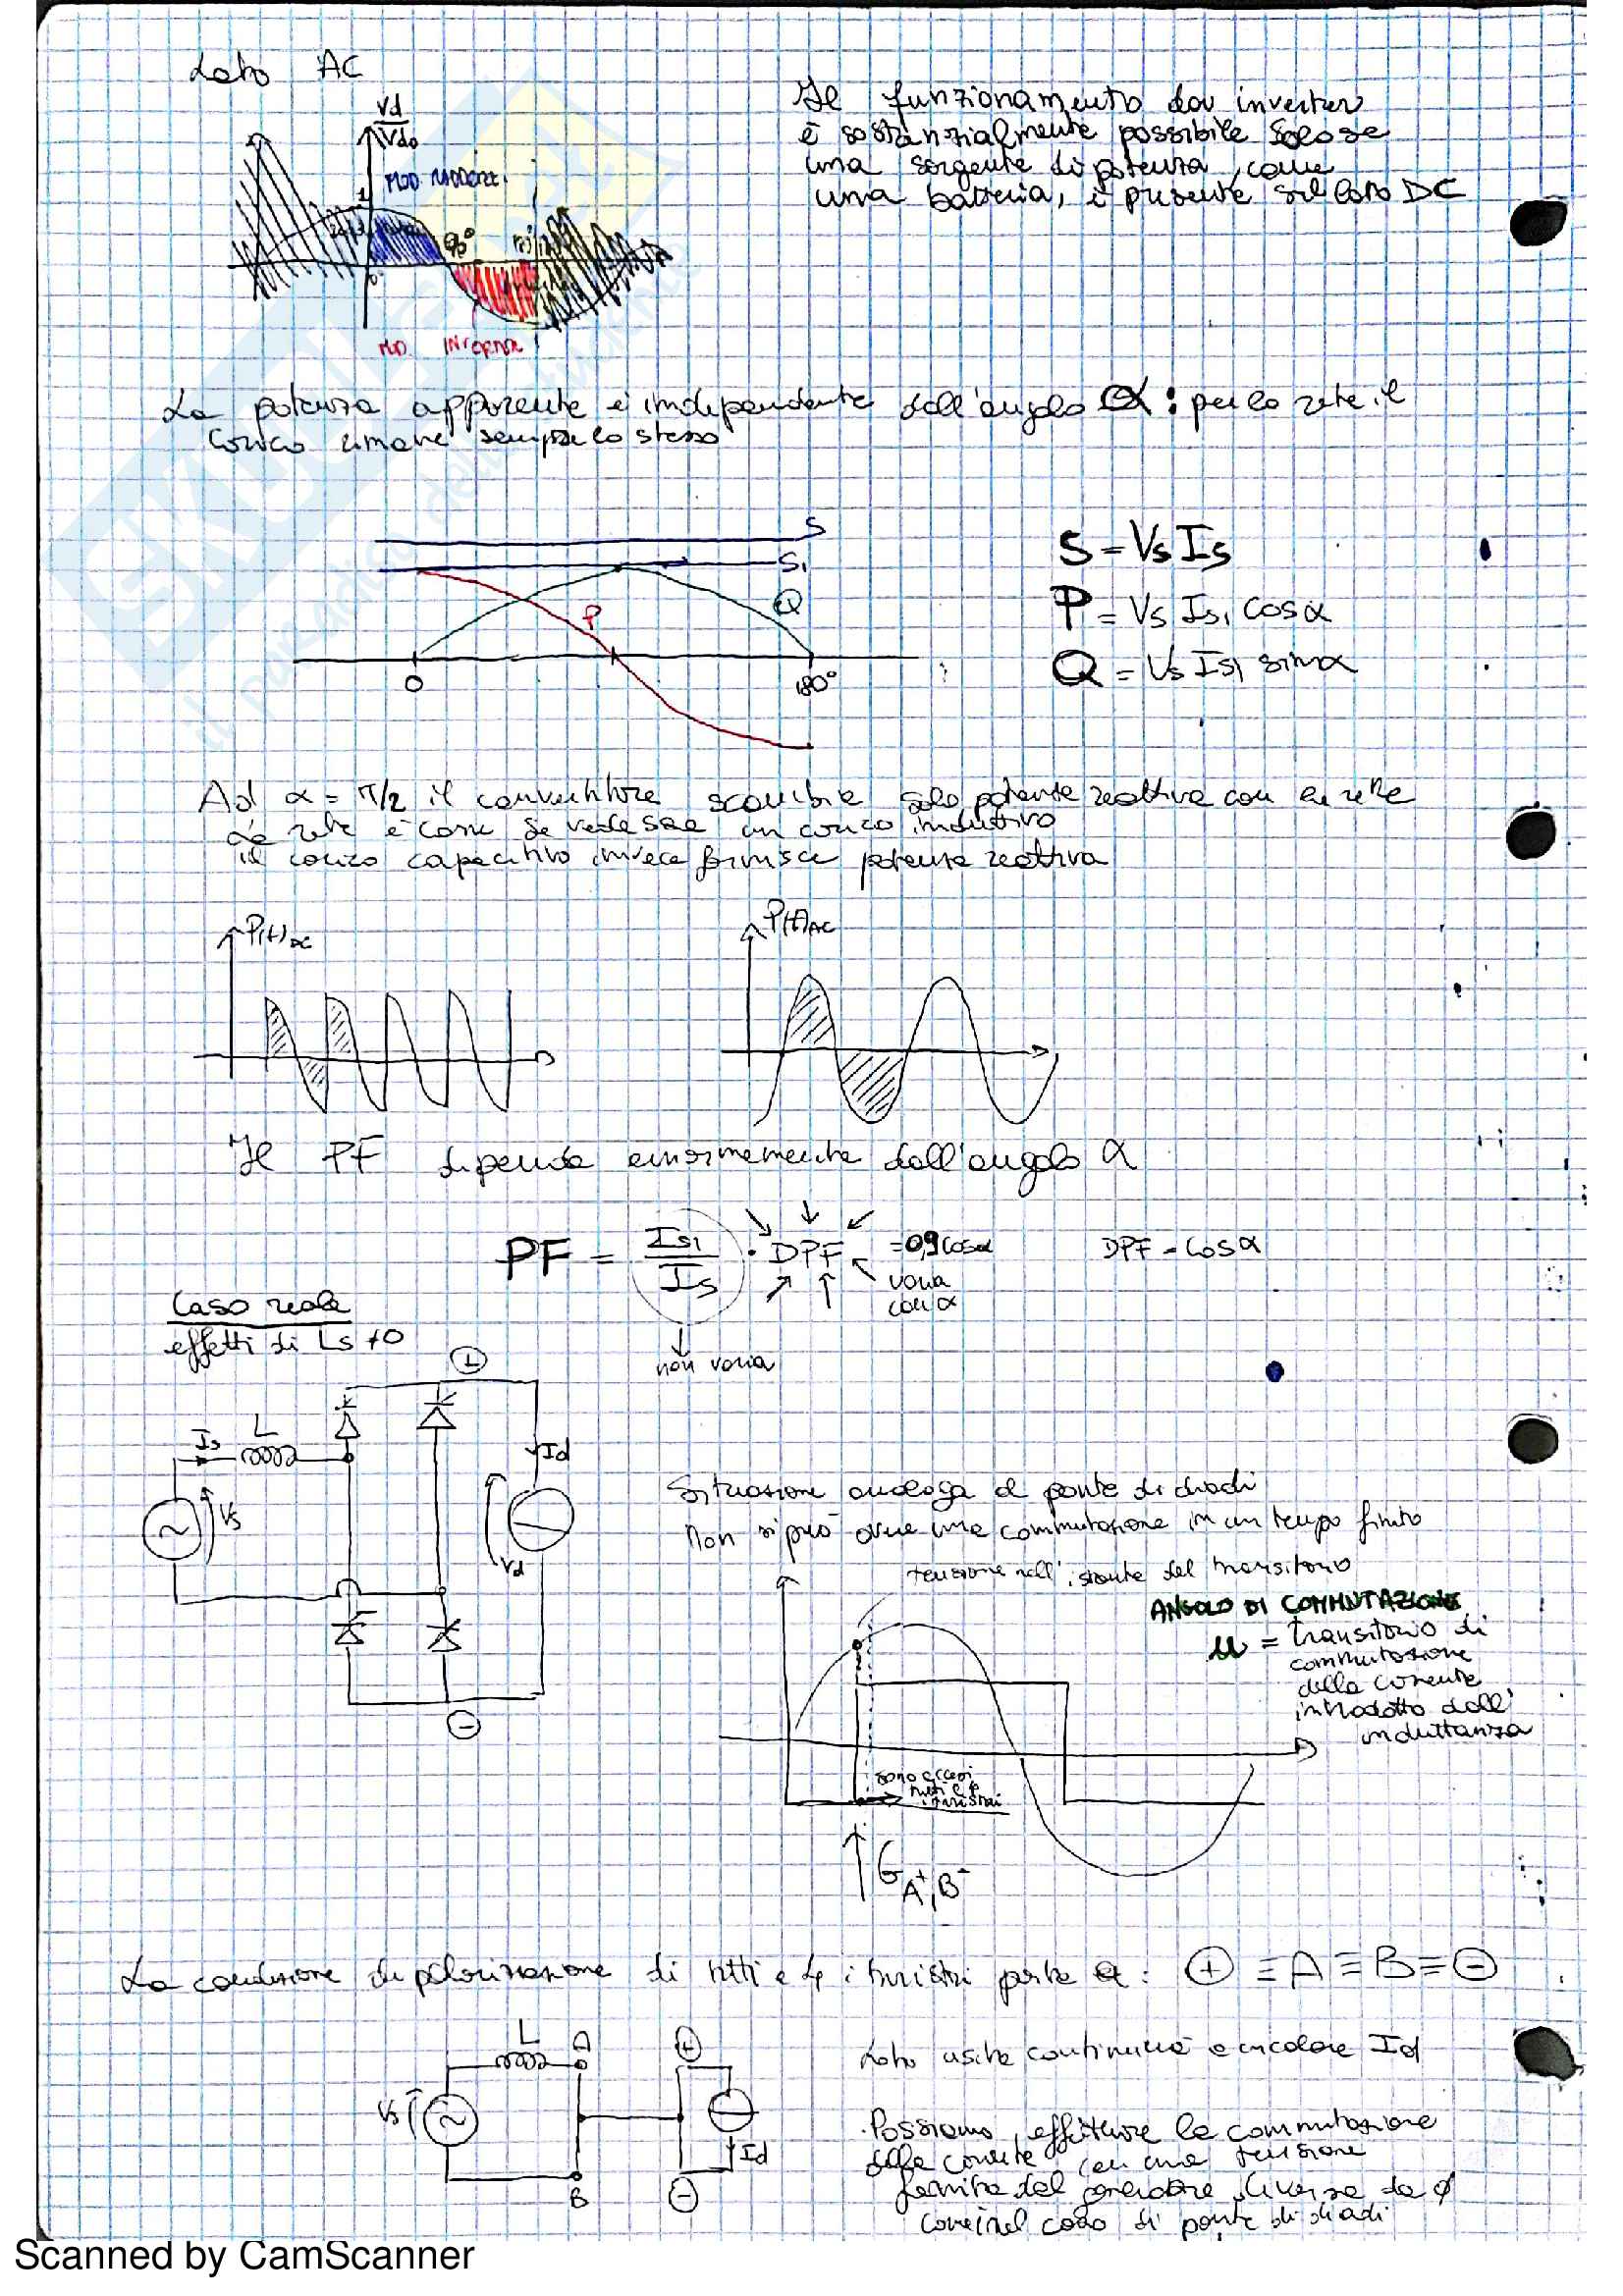 Lato AC
Vd
Vdo
MOD. RADDRIZ.
1
90°
0
MOD. INVERTER
Il funzionamento da inverter
è sostanzialmente possibile solo se
una sorgente di potenza, come
una batteria, è presente sul lato DC
La potenza apparente è indipendente dall'angolo α: per la rete il
carico rimane sempre lo stesso
S
S1
P
Q
0
180°
S = Vs Is
P = Vs Is1 cosα
Q = Vs Is1 sinα
Ad α = π/2 il convertitore scambia solo potenza reattiva con la rete
La rete è come se vedesse un carico induttivo
il carico capacitivo invece fornisce potenza reattiva
P(t)DC
P(t)AC
Il PF dipende enormemente dall'angolo α
PF = Is1/Is · DPF = 0,9 cosα
DPF = cosα
varia
con α
non varia
Caso reale
effetti di Ls ≠ 0
+
L
Is
Vs
Id
Vd
-
Situazione analoga al ponte di diodi
Non si può avere una commutazione in un tempo finito
tensione nell'istante del transitorio
ANGOLO DI COMMUTAZIONE
u = transitorio di
commutazione
della corrente
introdotto dall'
induttanza
sono accesi
tutti e 4
i tiristori
G A+,B-
La condizione di polarizzazione di tutti e 4 i tiristori porta a: + ≡ A ≡ B ≡ -
L
A
Vs
B
+
Id
-
Lato uscita continua a circolare Id
Possiamo effettuare la commutazione
della corrente con una tensione
fornita dal generatore diversa da 0
come nel caso di ponte di diodi
SKUOLA
il paradiso dello studente
Scanned by CamScanner